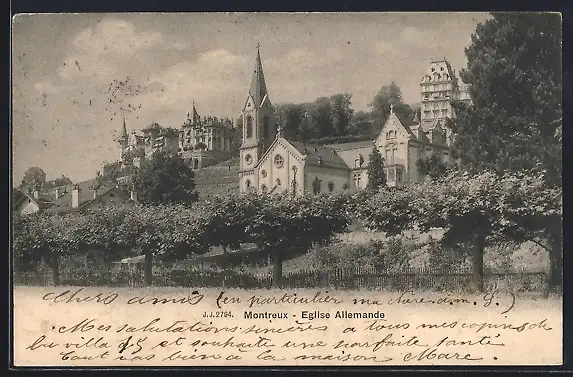 Chers amis (en particulier ma chère dm. G)
J.J. 2794. Montreux - Eglise Allemande
Mes salutations à tous mes
la villa et souhaite une parfaite santé
Tout va bien à la maison Marc.